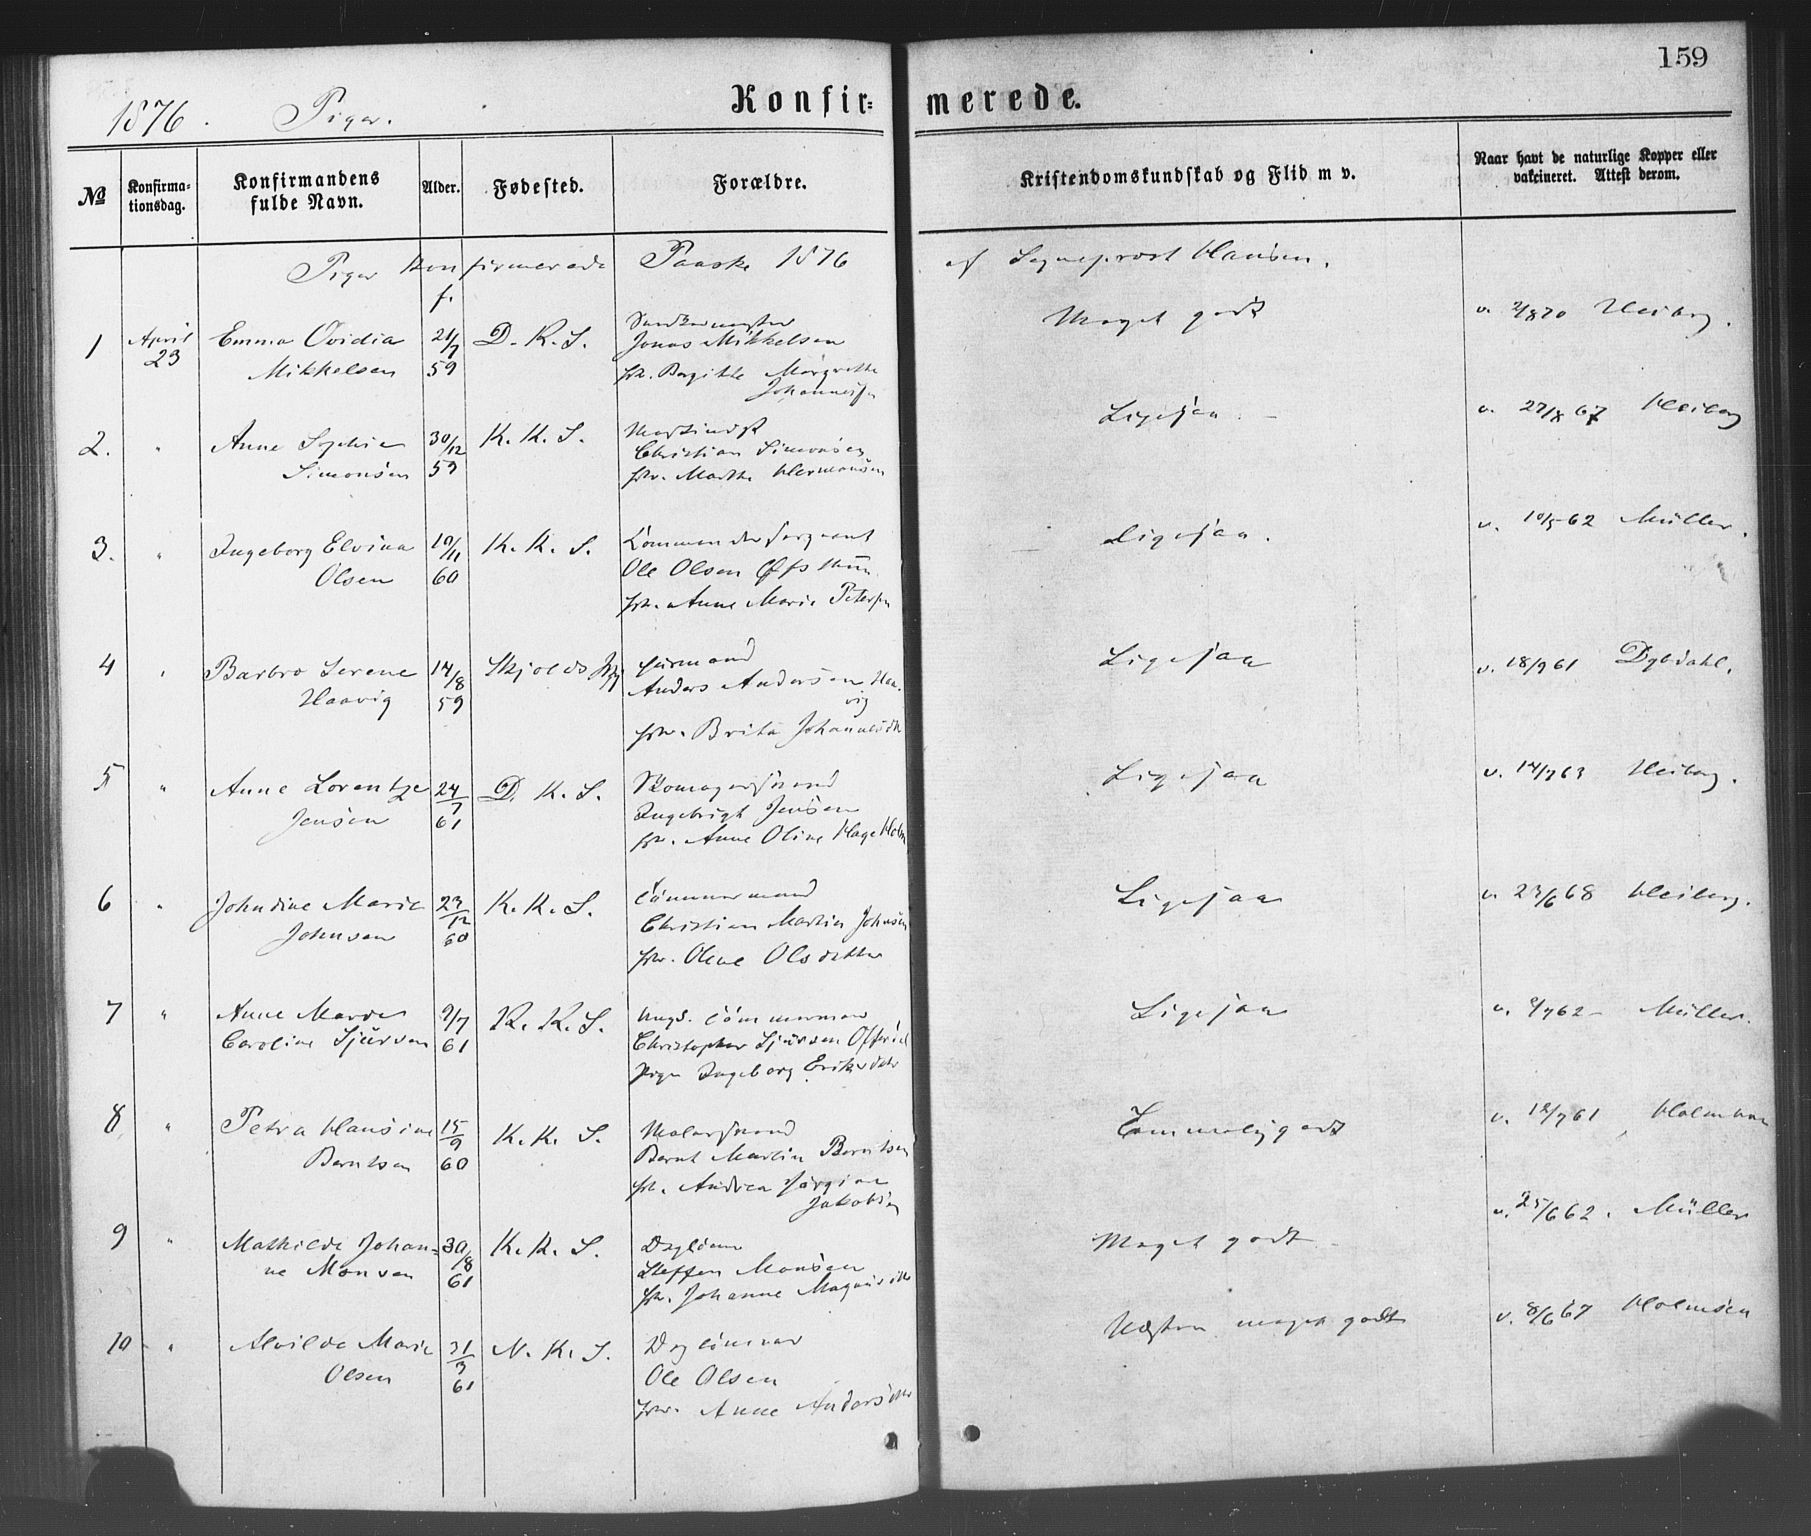 159
1876. Piger.
Konfir=
merede.
№
Konfirma-
tionsdag.
Konfirmandens
fulde Navn.
Alder.
Fødested.
Forældre.
Kristendomskundskab og Flid m v.
Naar havt de naturlige Kopper eller
vakcineret. Attest derom.
Piger Konfirmerede Paaske 1876
af Sogneprost Hansen.
f.
1 April 23 Emma Ovidia 21/7 D. K. S.
Mikkelsen 59
Jonas Mikkelsen
Margrethe
Meget godt
v. 2/8 70 Heiberg.
2. " Anne Sophie 30/12 K. K. S.
Simonsen 59
Christian Simonsen
Marthe Hermansen
Ligesaa. -
v. 27/8 67 Heiberg
3. " Ingeborg Elvina 19/11 K. K. S.
Olsen 60
Ole Olsen
Anne Marie Petersen
Ligesaa.
v. 10/5 62 Müller.
4 " Barbro Serene 14/8
Haavig 59
Anders Andersen Haa-
vig
Brita Johannesdtr
Ligesaa
v. 18/9 61 Dybdahl.
5 " Anne Lorentze 24/7 D. K. S.
Jensen 61
Ingebrigt Jensen
Anne Oline Hage Holm
Ligesaa
v. 14/7 63 Heiberg.
6 " Johndine Marie 23/12 K. K. S.
Johnsen 60
Tømmermand
Christian Martin Johnsen
Olene Olsdatter
Ligesaa
v. 23/6 68 Heiberg.
7 " Anne Marie 9/7 K. K. S.
Caroline Sjursen 61
Ungk. Tømmermand
Christopher Sjursen
Pige Ingeborg Eriksdatr
Ligesaa
v. 9/7 62 - Müller.
8 " Petra Hansine 15/9 K. K. S.
Berntsen 60
Malersvend
Bernt Martin Berntsen
Andrea Jørgine
Jakobsen
Temmelig godt
v. 12/7 61
9 " Mathilde Johan- 30/8 K. K. S.
ne Monsen 61
Steffen Monsen
Johanne Magnusdtr
Meget godt -
v. 25/6 62. Müller
10 - " Alvilde Marie 31/3 N. K. S.
Olsen 61
Ole Olsen
Anne Andersdtr
Næsten meget godt
v. 8/6 67 Holmsen